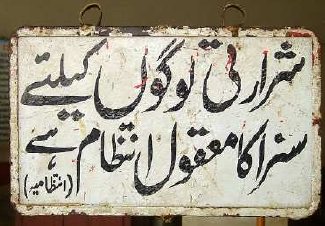 شرارتی لوگوں کیلئے
سزا کا معقول انتظام ہے
(انتظامیہ)